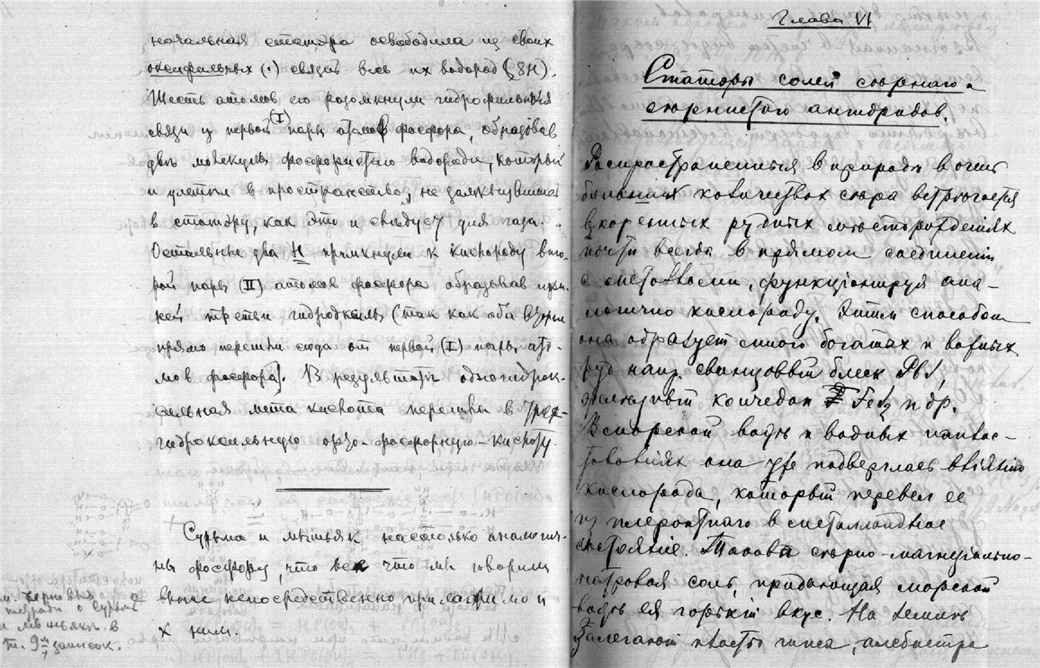 начальная статора освободила из своих
оксифильных (·) связей весь их водород (§8H).
Шесть атомов его разомкнули гидрофильныя
связи у первой (I) пары атомов фосфора, образовав
две молекулы фосфористаго водорода, который
и улетел в пространство, не замкнувшись
в статору, как это и следует для газа.
Остальные два H примкнули к кислороду вто-
рой пары (II) атомов фосфора образовав при
ней третий гидроксил, (так как оба
прямо перешли сюда от первой (I) пары ато-
мов фосфора). В результате одногидрок-
сильная мета кислота перешла в трех-
гидроксильную орто-фосфорную-кислоту
Сурьма и мышьяк настолько аналогич-
ны фосфору, что все что мы говорили
выше непосредственно применимо и
к ним.
см. черновыя
тетради о сурьме
и мышьяке в
записок.
Глава VI
Статоры солей сернаго и
сернистаго ангидридов.
Распространенная в природе в очень
больших количествах сера встречается
в коренных рудных месторождениях
почти всегда в прямом соединении
с металлами, функционируя ана-
логично кислороду. Этим способом
она образует много богатых и важных
руд напр. свинцовый блеск PbS,
железный колчедан FeS2 и др.
В морской воде и водных
она уже подверглась влиянию
кислорода, который перевел ее
из в металлоидное
состояние. Такова серно-магнезиально-
натровая соль, придающая морской
воде ея горький вкус. На земле
залегают пласты гипса, алебастра